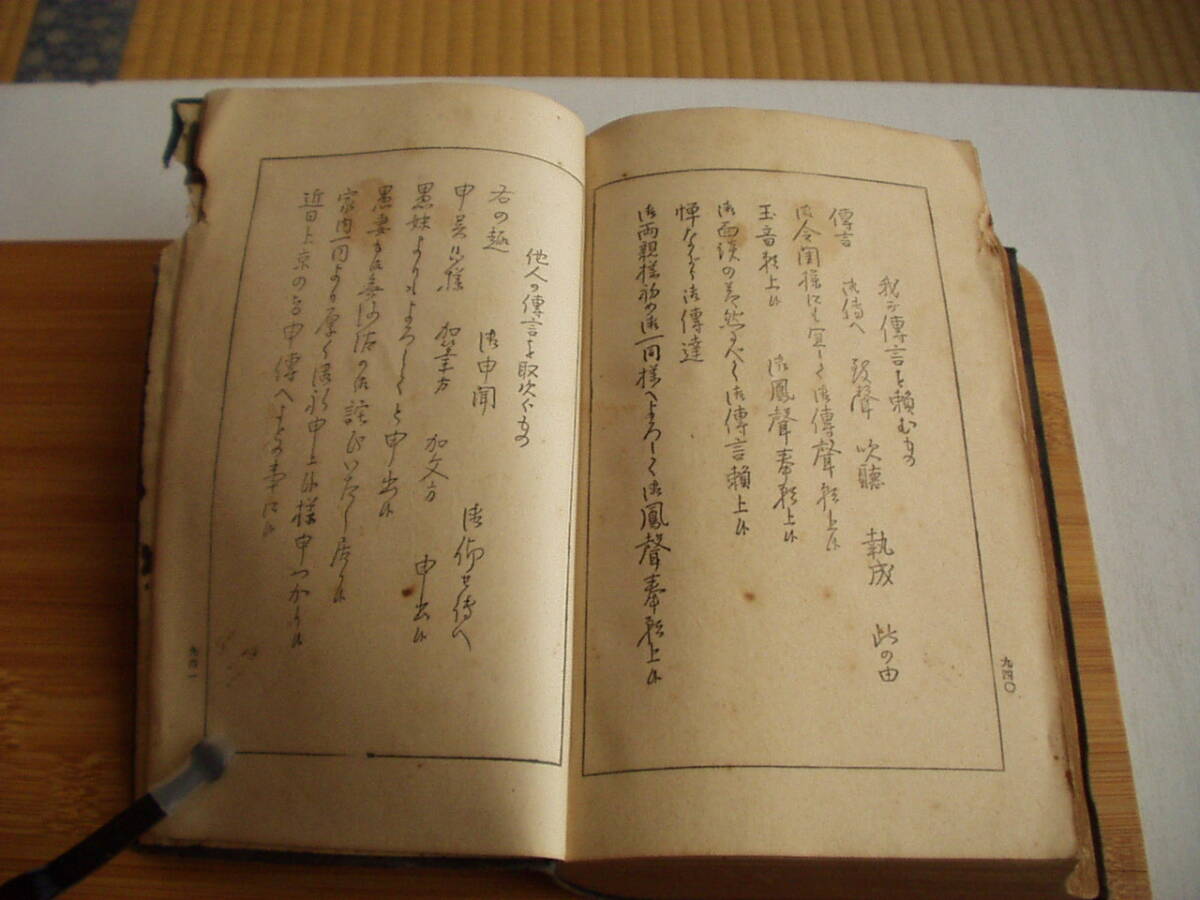 我が傳言を頼むもの
傳言　御傳へ　致聲　吹聽　執成　此の由
御令閨様にも宜しく御傳聲願上候
玉音願上候　御鳳聲奉願上候
御面談の節然るべく御傳言願上候
憚ながら御傳達
御両親様初め御一同様へよろしく御鳳聲奉願上候
九四〇
他人の傳言を取次ぐもの
右の趣　御申聞　御仰せ傳へ
申居候様　加筆方　加文方　申出候
愚妹よりもよろしくと申出候
愚妻か
家内一同より厚く御礼申上候様申つかり候
近日上京の旨申傳へよとの事に候
九四一